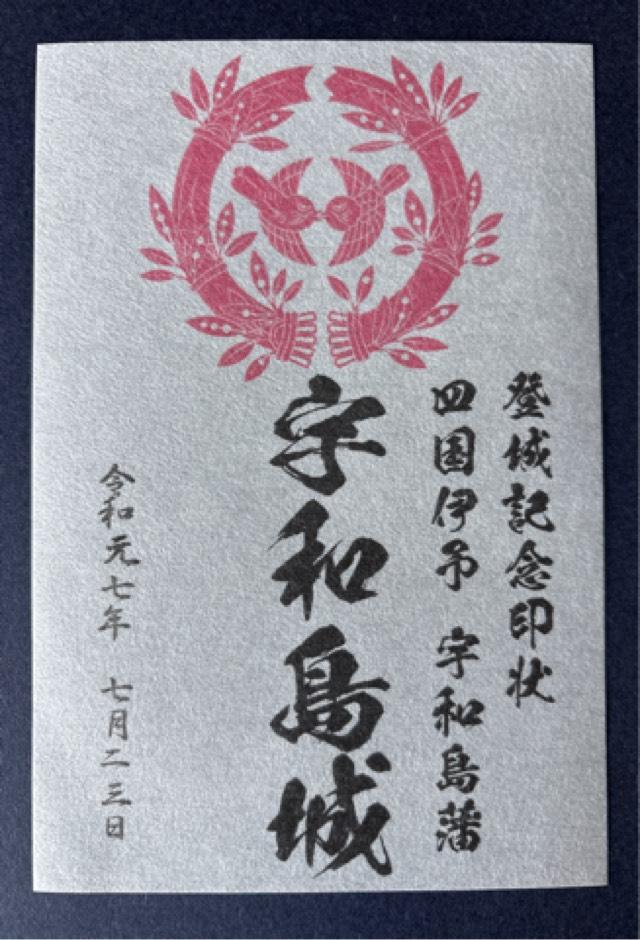 登城記念印状
四国伊予 宇和島藩
宇和島城
令和元七年 七月二三日